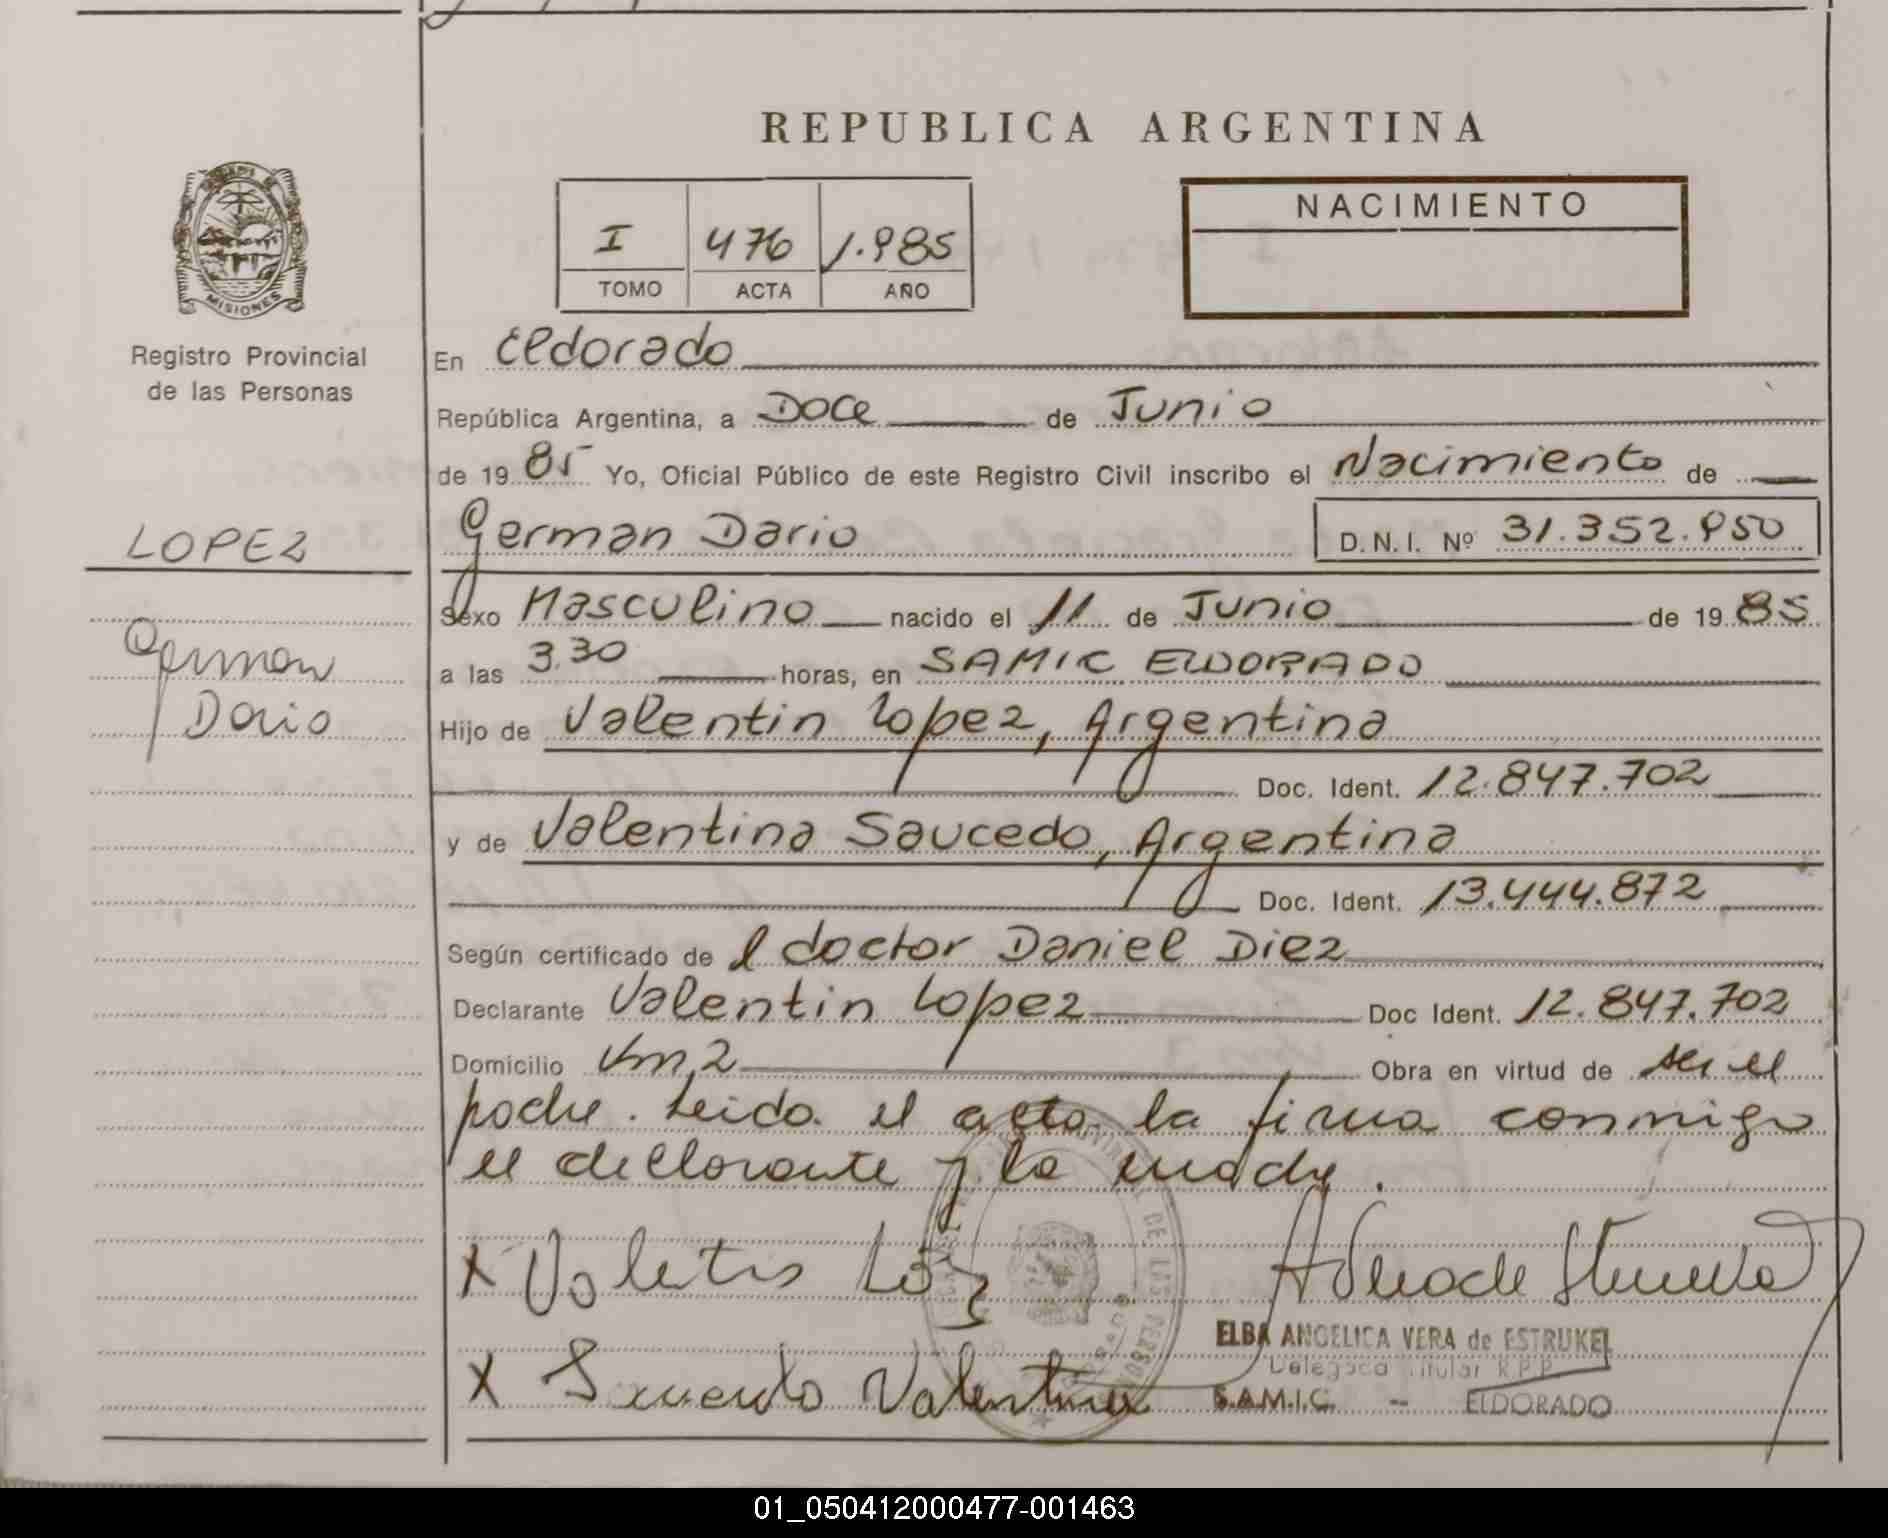 REPUBLICA ARGENTINA
MISIONES
Registro Provincial
de las Personas
I 476 1.985
TOMO ACTA AÑO
NACIMIENTO
En Eldorado
República Argentina, a Doce de Junio
de 1985 Yo, Oficial Público de este Registro Civil inscribo el Nacimiento de
LOPEZ
German Dario D.N.I. Nº 31.352.950
Sexo Masculino nacido el 11 de Junio de 1985
German
Dario
a las 3.30 horas, en SAMIC ELDORADO
Hijo de Valentin Lopez, Argentina
Doc. Ident. 12.847.702
y de Valentina Saucedo, Argentina
Doc. Ident. 13.444.872
Según certificado de l doctor Daniel Diez
Declarante Valentin Lopez Doc Ident. 12.847.702
Domicilio Km 2 Obra en virtud de ser el
padre. Leida el acta la firma conmigo
el declarante y la madre.
X Valentin
X Valentina
ELBA ANGELICA VERA de ESTRUKEL
Delegada Titular R.P.P.
S.A.M.I.C. - ELDORADO
01_050412000477-001463